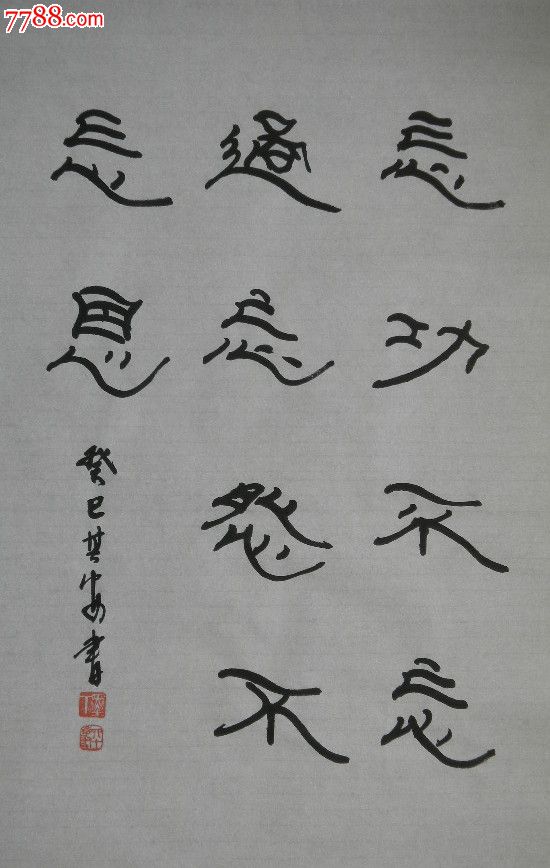 7788.com
忘功不忘
過忘怨不
忘恩
癸巳其書